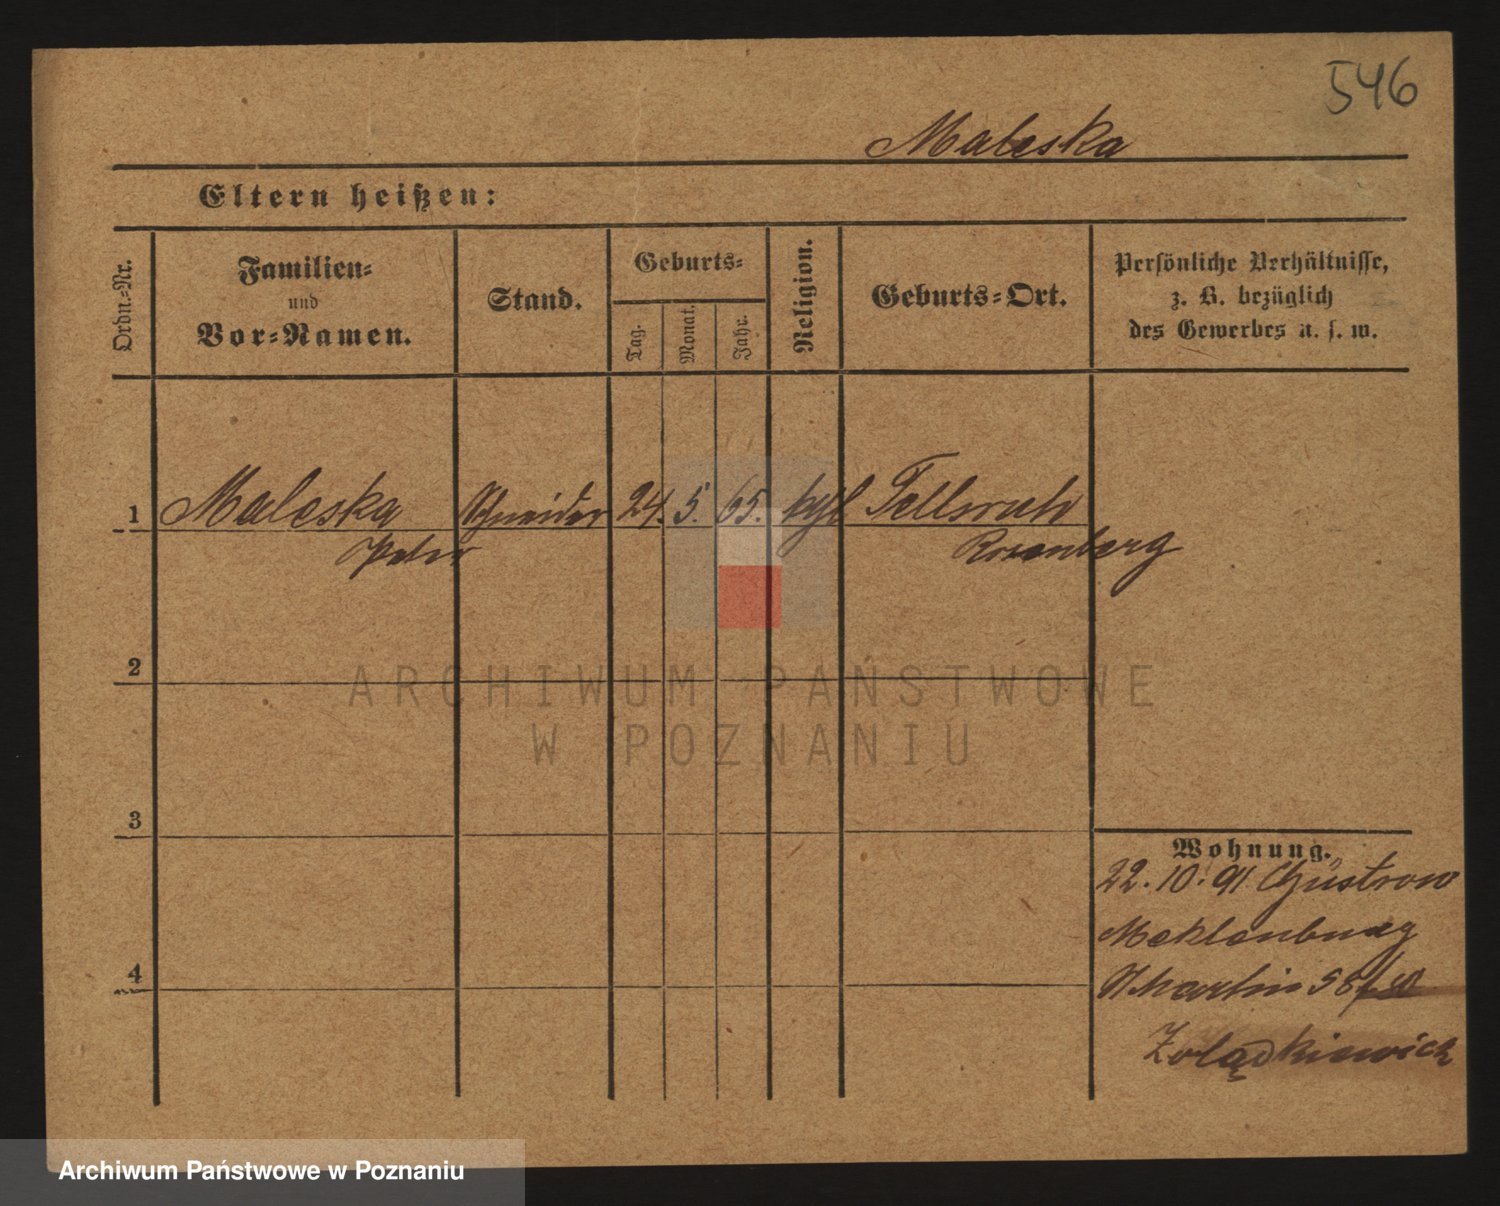 546
Maleska
Eltern heißen:
Ordn.-Nr.
Familien-
und
Vor-Namen.
Stand.
Geburts-
Tag.
Monat.
Jahr.
Religion.
Geburts-Ort.
Persönliche Verhältnisse,
z. B. bezüglich
des Gewerbes u. s. w.
1 Maleska Schneider 24. 5. 65. kath Tellsruh
Peter Rosenberg
2
ARCHIWUM PAŃSTWOWE
W POZNANIU
3
Wohnung.
22. 10. 91 Güstrow
Meklenburg
4
St Martin 58
Żołądkiewicz
Archiwum Państwowe w Poznaniu